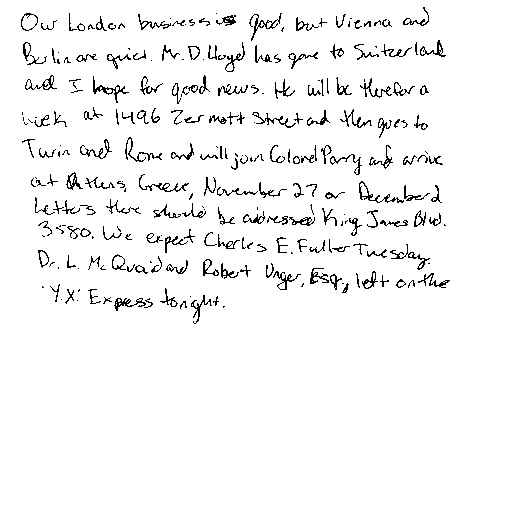 Our London business is good, but Vienna and
Berlin are quiet. Mr. D. Lloyd has gone to Switzerland
and I hope for good news. He will be there for a
week at 1496 Zermott Street and then goes to
Turin and Rome and will join Colonel Parry and arrive
at Athens, Greece, November 27 or December 2.
Letters there should be addressed King James Blvd.
3580. We expect Charles E. Fuller Tuesday.
Dr. L. McQuaid and Robert Unger, Esq., left on the
"Y.X." Express tonight.